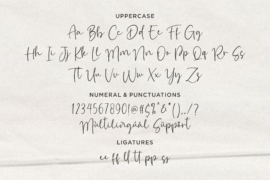 UPPERCASE
Aa Bb Cc Dd Ee Ff Gg
Hh Ii Jj Kk Ll Mm Nn Oo Pp Qq Rr Ss
Tt Uu Vv Ww Xx Yy Zz
NUMERAL & PUNCTUATIONS
Multilingual Support
LIGATURES
ee ff ll tt pp ss